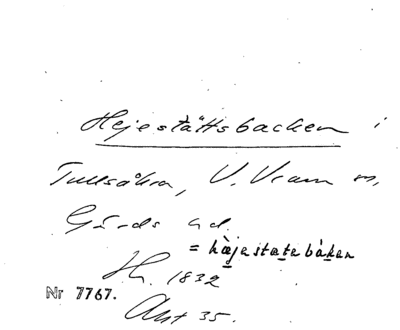 Hejestättsbacken i
Tullsåkra, V. Vram sn,
Gärds hd.
= häjestätebåken
H. 1832
Nr 7767.
Akt 35.